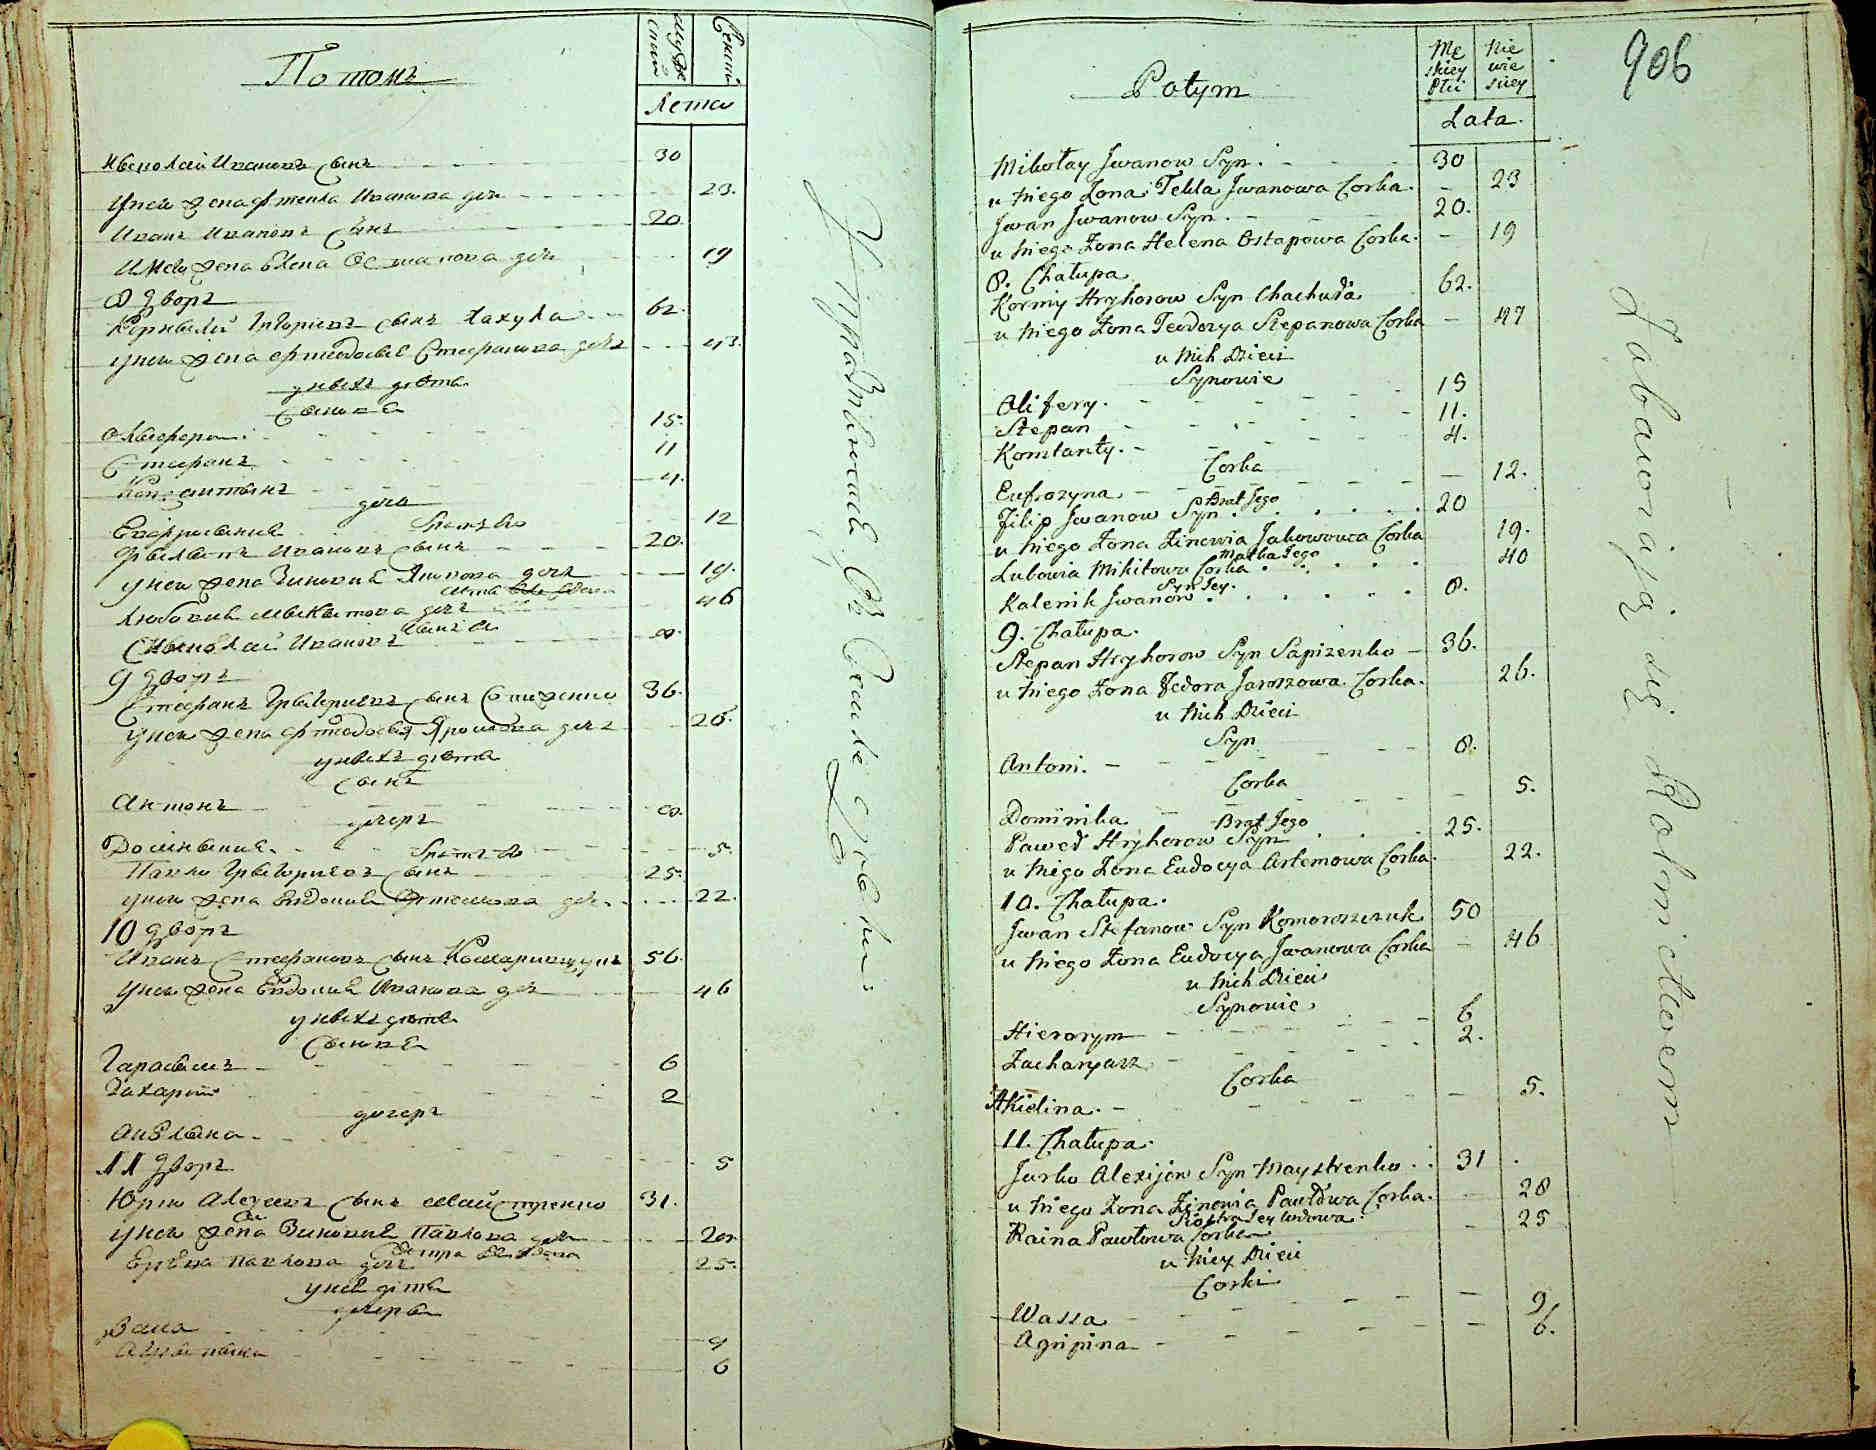 Потомъ
Мужс
скій
Женскій
Лета
Николай Ивановъ сынъ 30
у него жена Фтекла Иванова дочь 23.
Иванъ Ивановъ сынъ 20
у него жена Елена Остапова дочь 19
8 дворъ
Корнилий Григориевъ сынъ Хахула 62.
у него жена Фтеодосия Стефанова дочь 43.
у нихъ дети
сынова
Олиферъ 15.
Стефанъ 11
Константинъ 4.
дочь
Евфросиния 12
братъ его
Филипъ Ивановъ сынъ 20.
у него жена Зиновия Якимова дочь 19.
Любовия Микитова дочь 46
Ивановъ 8.
9 дворъ
Стефанъ Григориевъ сынъ 36.
у него жена Фтеодосия Ярошова дочь 26.
у нихъ дети
сынъ
Антонъ 8.
дочеръ
Доминикия. 5.
братъ его
Павло Григориевъ сынъ 25.
у него жена Евдокия Артемова дочь. 22.
10 дворъ
Иванъ Стефановъ сынъ 56.
у него жена Евдокия Иванова дочь 46
у нихъ дети
сынова
Гарасимъ 6
Захарий 2
дочеръ
Акилина 5
11 дворъ
Юрко Алексеевъ сынъ Майстренко 31.
у него жена Зиновия Павлова дочь 28.
Ирина Павлова дочь сестра ея вдова 25.
у ней дети
дочери
Васса 9
Агрипина 6
Potym
Mę
skiey
Płci
Nie
wie
sciey
Lata.
906
Mikołay Jwanow Syn. 30
u niego Zona Tekla Jwanowa Corka. 23
Jwan Jwanow Syn. 20.
u niego Zona Helena Ostapowa Corka. 19
8. Chałupa
Korniy Hryhorow Syn Chachuła 62.
u niego Zona Teodozya Stepanowa Corka 47
u nich Dzieci
Synowie
Olifery. 15
Stepan 11.
Konstanty. 4.
Corka
Eufrozyna 12.
Brat Jego
Filip Jwanow Syn 20
u niego Zona Zinowia Jakowowa Corka 19.
Matka Jego
Lubowia Mikitowa Corka 40
Syn Jey.
Kalenik Jwanow 8.
9. Chałupa.
Stepan Hryhorow Syn Sapizenko 36.
u niego Zona Fedora Jaroszowa Corka. 26.
u nich Dzieci
Syn
Antoni. 8.
Corka
Dominika 5.
Brat Jego
Paweł Hryhorow Syn 25.
u niego Zona Eudocya Artemowa Corka. 22.
10. Chałupa.
Jwan Stefanow Syn Komoroszczuk 50
u niego Zona Eudocya Jwanowa Corka 46
u nich Dzieci
Synowie
Hieronym 6
Zacharyasz 2.
Corka
Akielina. 5.
11. Chałupa.
Jurko Alexijow Syn Maystrenko 31
u niego Zona Zinowia Pawłowa Corka. 28
Siostra Jey wdowa
Raina Pawłowa Corka 25
u niey Dzieci
Corki
Wassa 9
Agripina 6.
Zabawiaią się Rolnictwem